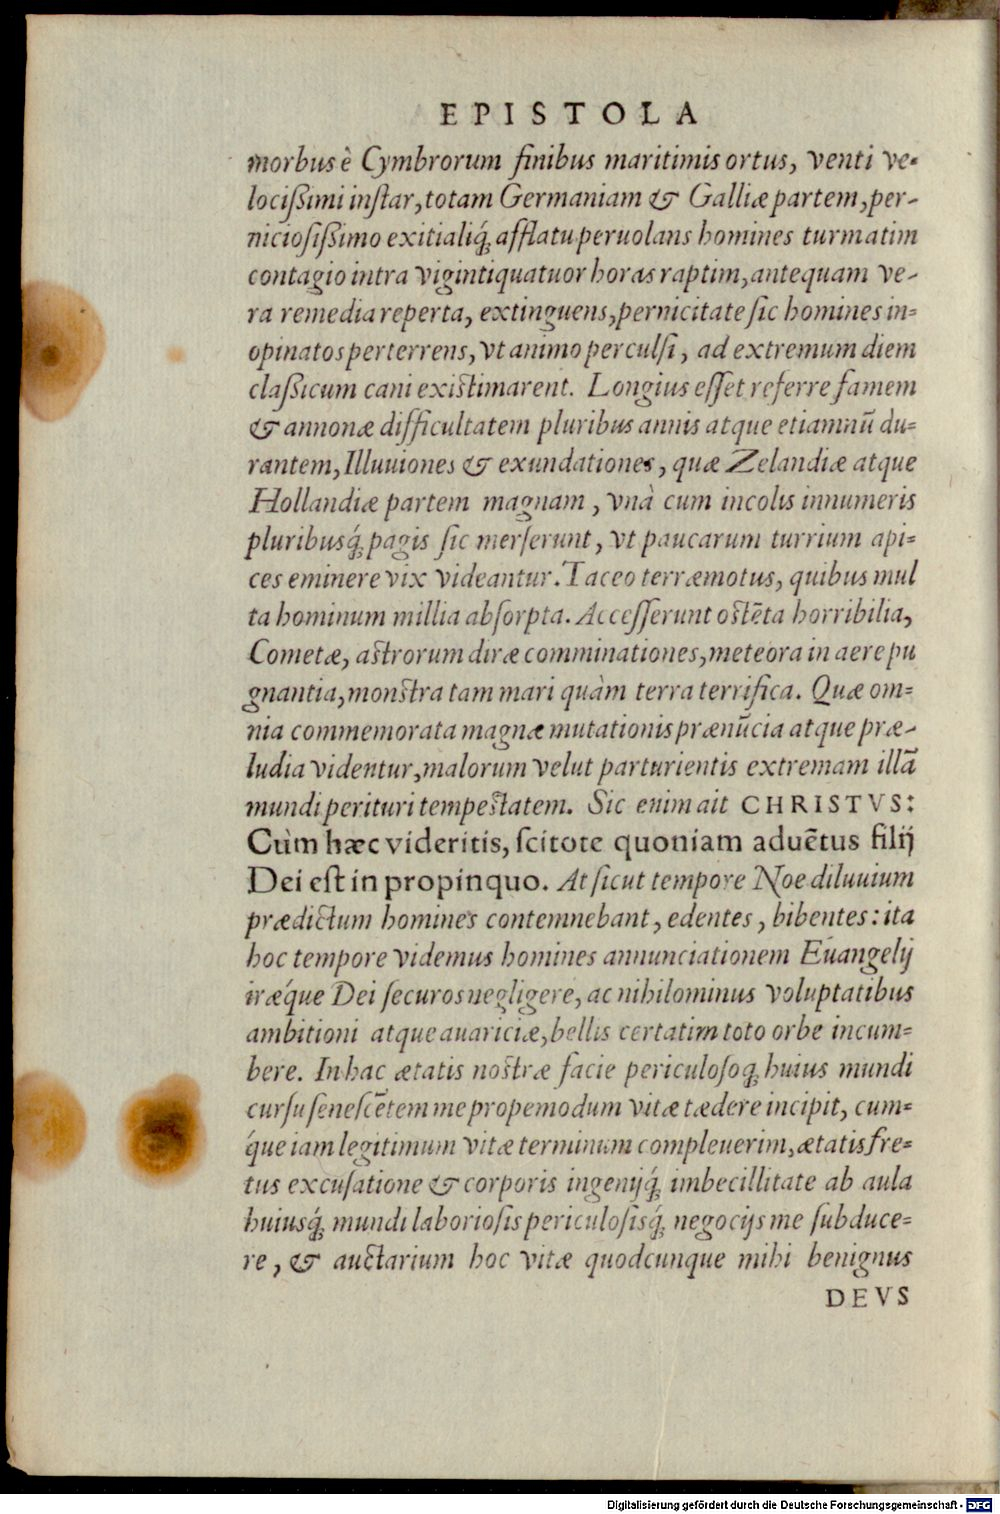 EPISTOLA
morbus è Cymbrorum finibus maritimis ortus, venti ve-
locißimi instar, totam Germaniam & Galliæ partem, per-
niciosißimo exitialiq́; afflatu peruolans homines turmatim
contagio intra vigintiquatuor horas raptim, antequam ve-
ra remedia reperta, extinguens, pernicitate sic homines in=
opinatos perterrens, vt animo perculsi, ad extremum diem
claßicum cani existimarent. Longius esset referre famem
& annonæ difficultatem pluribus annis atque etiamnū du=
rantem, Illuuiones & exundationes, quæ Zelandiæ atque
Hollandiæ partem magnam, vnà cum incolis innumeris
pluribusq́; pagis sic merserunt, vt paucarum turrium api=
ces eminere vix videantur. Taceo terræmotus, quibus mul
ta hominum millia absorpta. Accesserunt ostēta horribilia,
Cometæ, astrorum diræ comminationes, meteora in aere pu
gnantia, monstra tam mari quàm terra terrifica. Quæ om=
nia commemorata magnæ mutationis prænūcia atque præ-
ludia videntur, malorum velut parturientis extremam illā
mundi perituri tempestatem. Sic enim ait CHRISTVS:
Cùm hæc videritis, scitote quoniam aduētus filij
Dei est in propinquo. At sicut tempore Noe diluuium
prædictum homines contemnebant, edentes, bibentes: ita
hoc tempore videmus homines annunciationem Euangelij
iræq́ue Dei securos negligere, ac nihilominus voluptatibus
ambitioni atque auariciæ, bellis certatim toto orbe incum=
bere. In hac ætatis nostræ facie periculosoq́; huius mundi
cursu senescētem me propemodum vitæ tædere incipit, cum=
q́ue iam legitimum vitæ terminum compleuerim, ætatis fre=
tus excusatione & corporis ingenijq́; imbecillitate ab aula
huiusq́; mundi laboriosis periculosisq́; negocijs me subduce=
re, & auctarium hoc vitæ quodcunque mihi benignus
DEVS
Digitalisierung gefördert durch die Deutsche Forschungsgemeinschaft - DFG